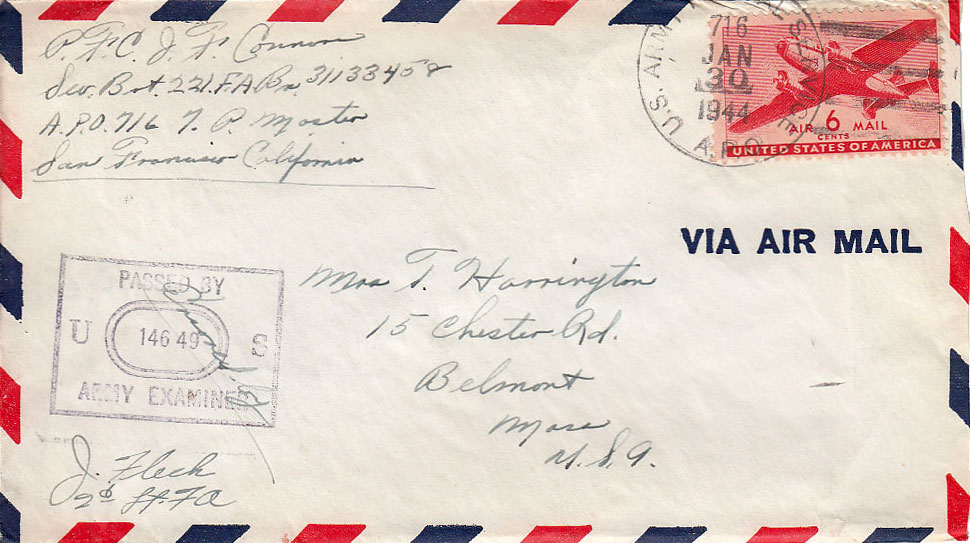 P.F.C. J. F. Connon
Sev. Bat. 221.F.A.Bn. 31133458
A.P.O. 716 % P. Master
San Francisco California
U.S. ARMY
716
JAN
30
1944
A.P.O.
AIR 6 MAIL
CENTS
UNITED STATES OF AMERICA
VIA AIR MAIL
PASSED BY
U 146 49 S
ARMY EXAMINER
Mrs T. Harrington
15 Chester Rd.
Belmont
Mass
U.S.A.
J. Flech
2d Lt. FA